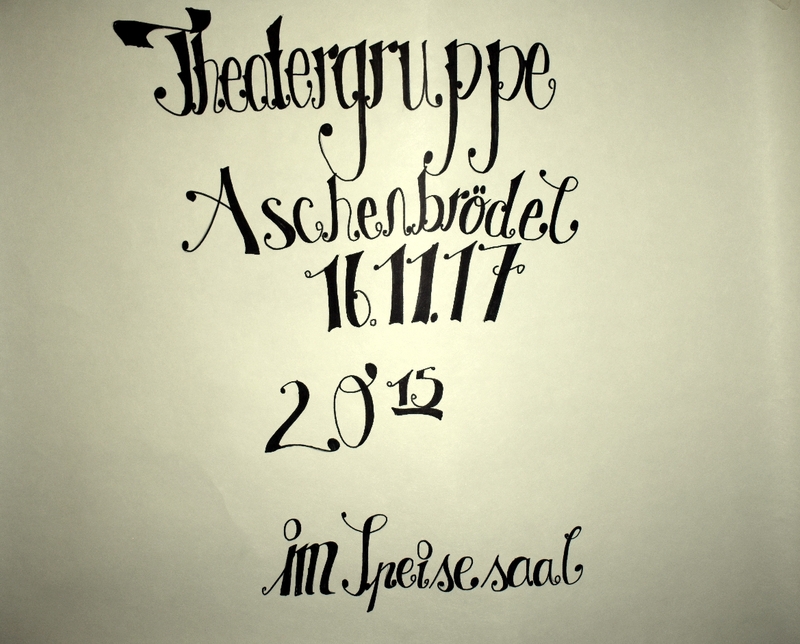 Theatergruppe
Aschenbrödel
16.11.17
20 15
im Speisesaal